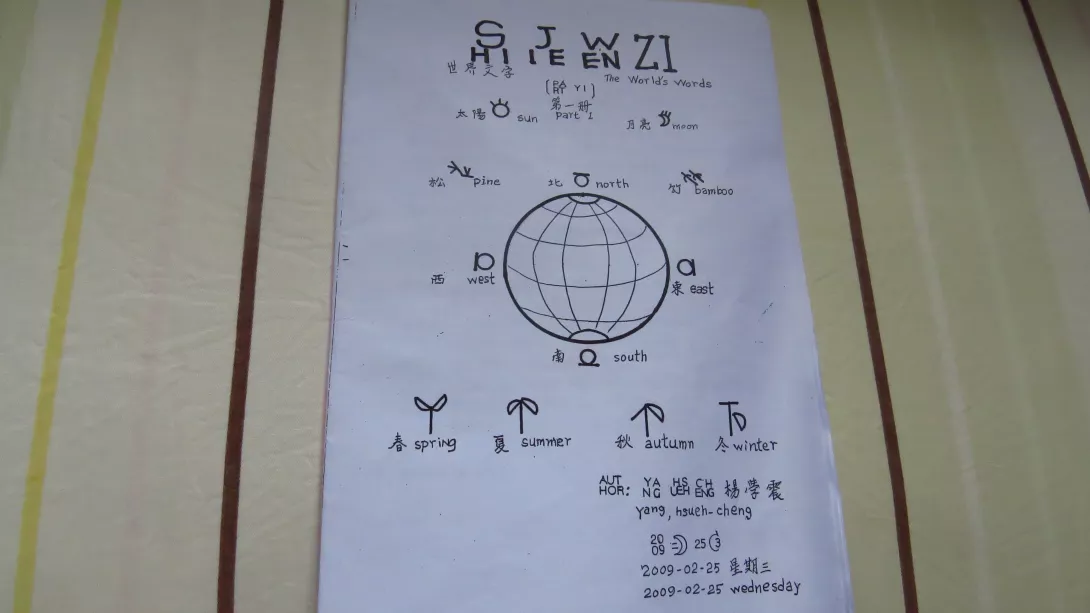 SHI JIE WEN ZI
世界文字 The World's Words
(PART YI)
太陽 sun 第一冊 part 1 月亮 moon
松 pine 北 north 竹 bamboo
西 west 東 east
南 south
春 spring 夏 summer 秋 autumn 冬 winter
AUTHOR: YANG HSUEH CHENG 楊學
yang, hsueh-cheng
2009 25 3
2009-02-25 星期三
2009-02-25 wednesday